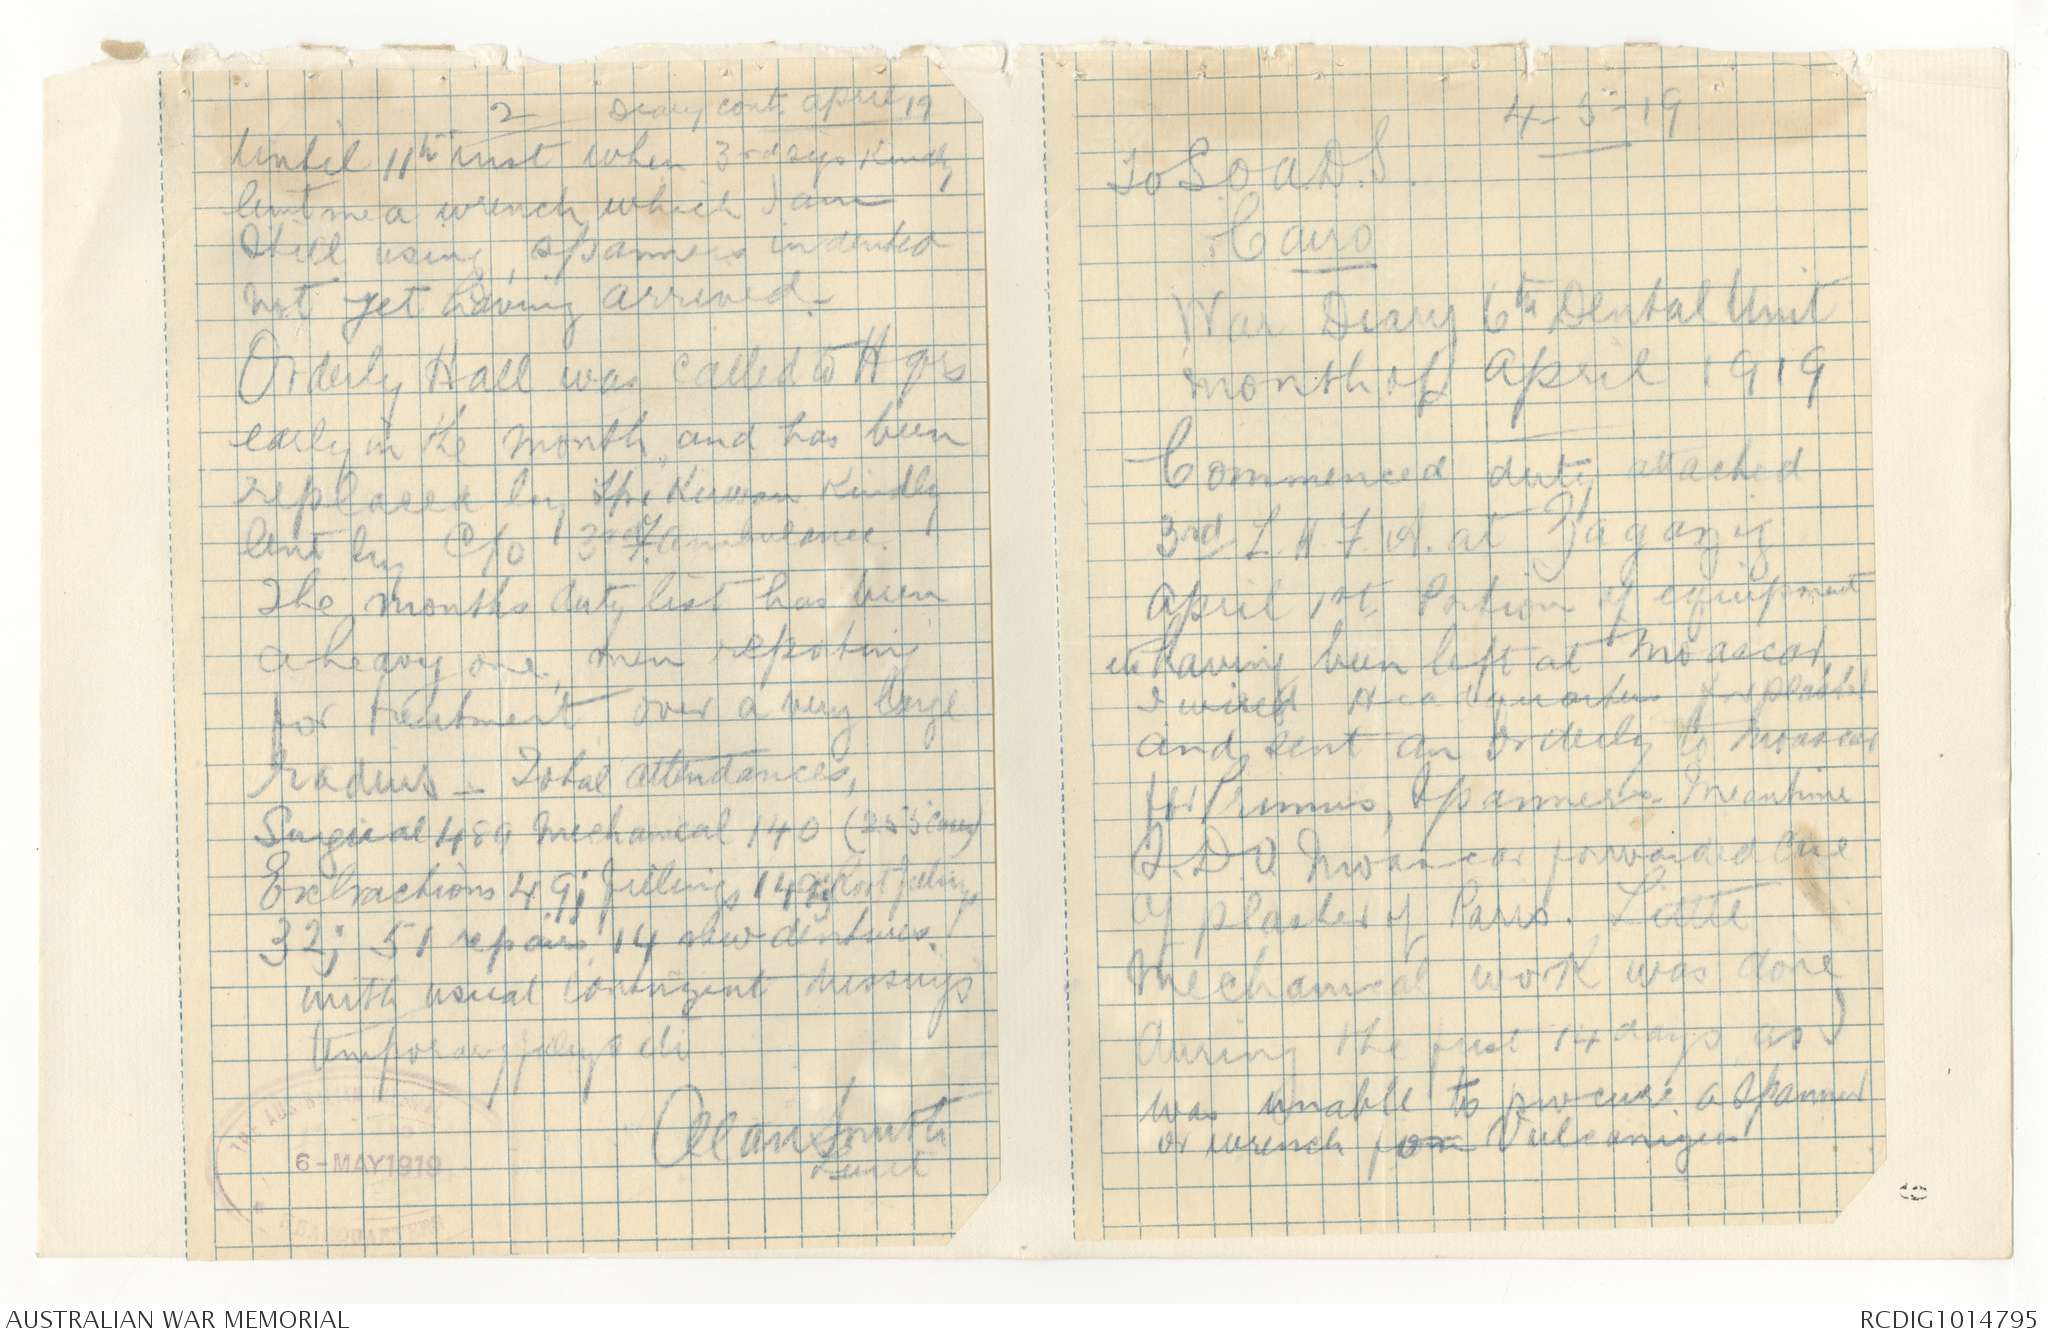 2 Diary cont. April 19
Until 11th inst when 3rd sigs Kindly
lent me a wrench which I am
Still using, spanners indented
not yet having arrived -
Orderly Hall was called to Hqrs
early in the month, and has been
replaced by Kindly
lent by C/o 3rd F. Ambulance.
The months duty list has been
a heavy one, men repoting
for treatment over a very large
radius - Total attendances,
Surgical 489 Mechanical 140 (255 cases)
Extractions 49; fillings Root fillings
32; 51 repairs 14 new dentures.
with usual contingent dressings
temporary
Allan Smith
Lieut
6-MAY 1919
HEADQUARTERS
4-5-19
To S.O.A.D.S.
Cairo
War Diary 6th Dental Unit
month of April 1919
Commenced duty attached
3rd L.H.F.A. at Zagazig
April 1st. Portion of equipment
having been left at Moascar,
I wired Headquarters for plaster
and sent an orderly to Moascar
for Primus, Spanners. Meantime
Q.D.O Moascar forwarded one
of plaster of Paris. Little
Mechanical work was done
during the first 14 days as I
was unable to procure a spanner
or wrench for Vulcanizer
AUSTRALIAN WAR MEMORIAL
RCDIG1014795